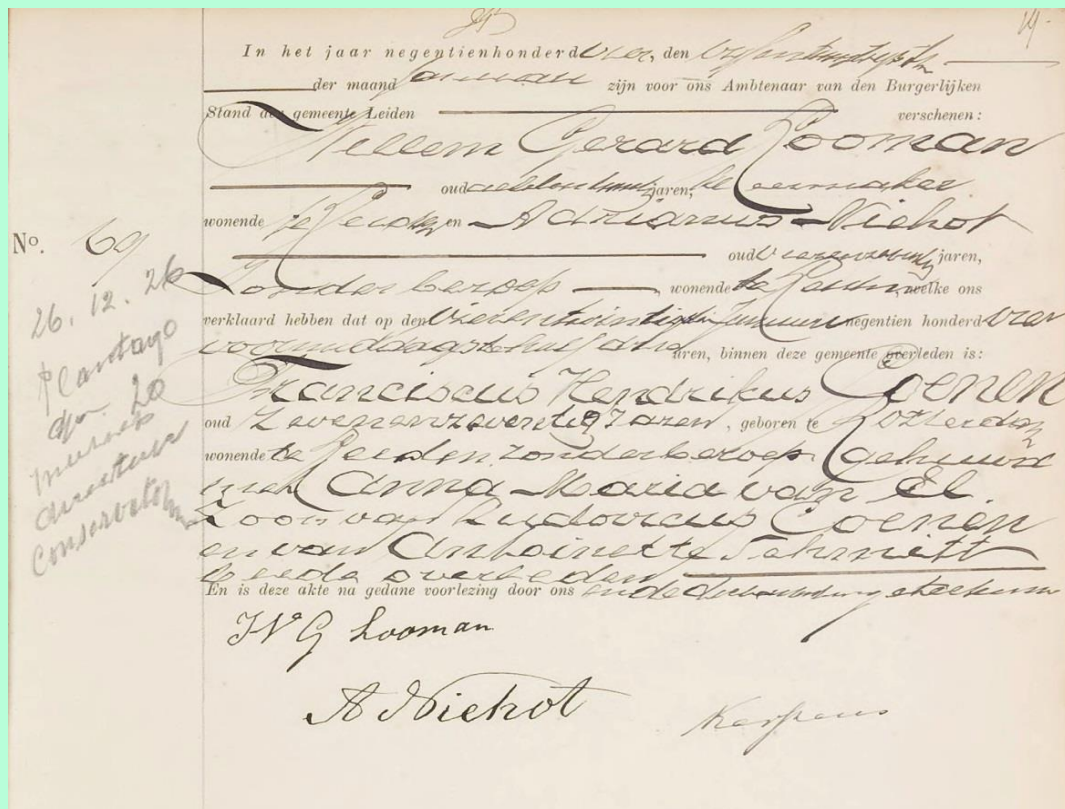 14.
In het jaar negentienhonderd vier, den vijfentwintigsten
der maand Januari zijn voor ons Ambtenaar van den Burgerlijken
Stand der gemeente Leiden verschenen:
Willem Gerard Looman
oud jaren,
wonende te Leiden en Adrianus Niehot
oud jaren,
Zonder beroep, wonende te Leiden, welke ons
verklaard hebben dat op den vierentwintigsten Januari negentien honderd vier
voormiddags te half uren, binnen deze gemeente overleden is:
Franciscus Hendrikus Coenen
oud Zevenenzeventig Jaren, geboren te Rotterdam
wonende te Leiden zonder beroep gehuwd
met Anna Maria van El.
Zoon van Ludovicus Coenen
en van Antoinette Schmitt
beide overleden
En is deze akte na gedane voorlezing door ons en de geteekend
W G Looman
A Niehot
No. 69
26.12.26
Plantage
20
muziek
directeur
Conservatorium